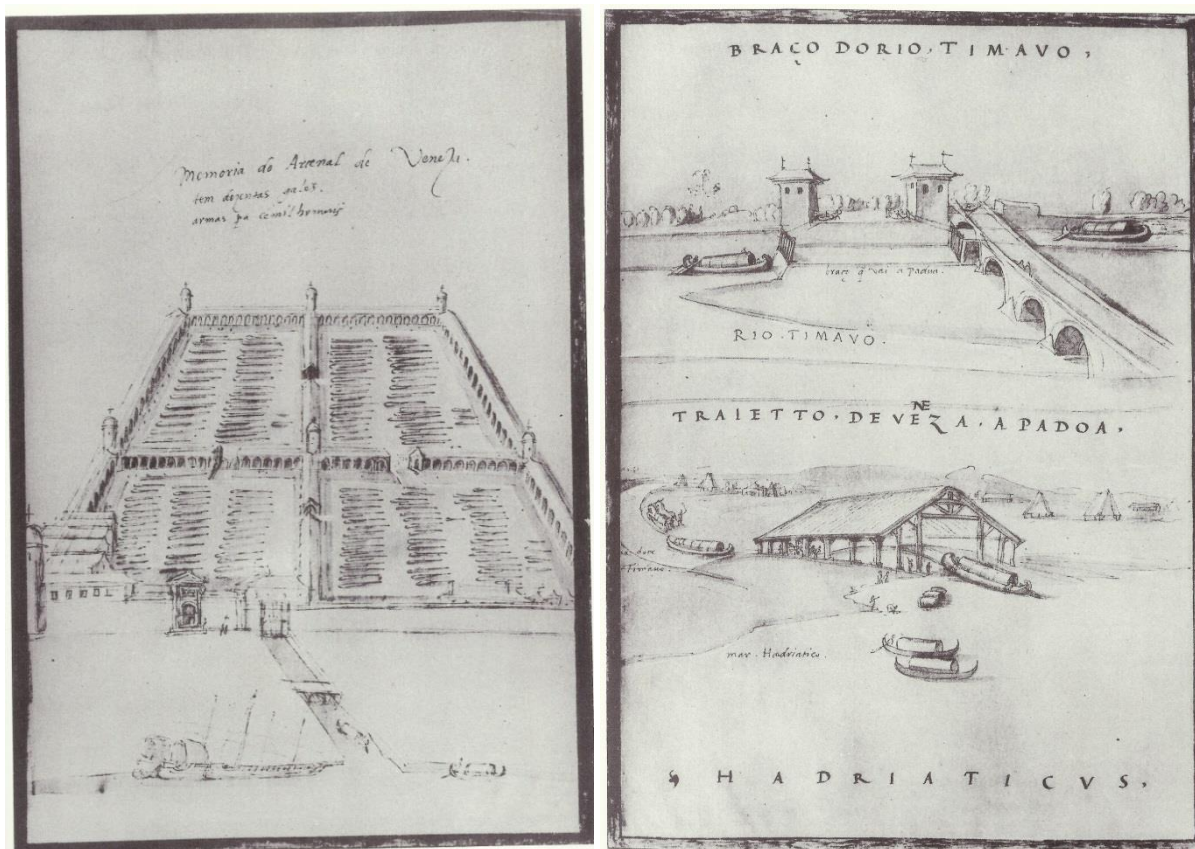 Memoria do Arcenal de Veneza.
tem dozentas galés.
armas pa cemil homens
BRAÇO DORIO. TIMAVO,
braço q vai a Padua.
RIO. TIMAVO.
TRAIETTO. DE VENEZA. Á PADOA,
Timavo.
mar. Hadriatico.
HADRIATICVS,